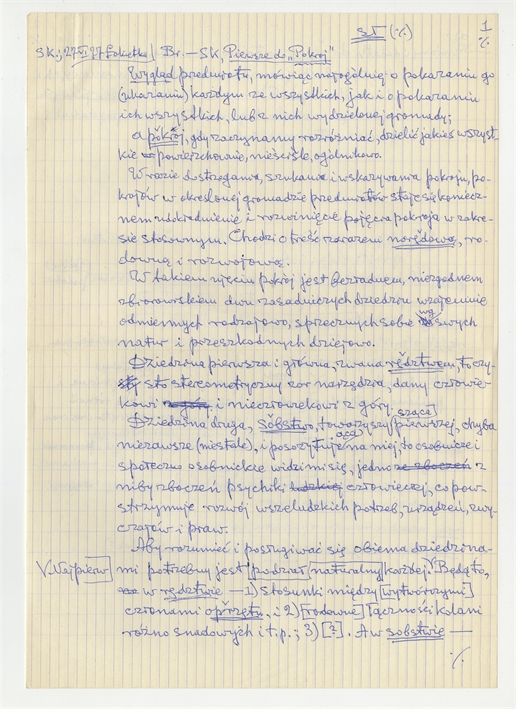 1
s I (·/.)
·/.
SK., 27 VI 77 Br.—SK, Pierwsze do „Pokrój"
Wygląd przedmiotu, mówiąc najogólniej o pokazaniu go
(ukazaniu) każdym ze wszystkich, jak i o pokazaniu
ich wszystkich, lub z nich wydzielonej gromady;
a pokrój, gdy zaczynamy rozróżniać, dzielić jakieś wszyst-
kie powierzchownie, nieściśle, ogólnikowo.
W razie dostrzegania, szukania i wskazywania pokroju, po-
krojów w określonej gromadzie przedmiotów staje się koniecz-
nem uokładnienie i rozwinięcie pojęcia pokroju w zakre-
sie stosownym. Chodzi o treść zarazem narzędową, ro-
downą i rozwojową.
W takiem ujęciu pokrój jest bezradnem, niezgodnem
zborowskiem dwu zasadniczych dziedzin wzajemnie
odmiennych rodzajowo, sprzecznych sobie wg swych
natur i przeszkodnych dziejowo.
Dziedzina pierwsza i główna, zwana rędztwem, to czy-
sto stereometryczny zor narządzia, dany człowie-
kowi i nieczłowiekowi z góry.
Dziedzina druga, sobstwo, towarzysząca pierwszej, chyba
niezawsze (niestale), i pasożytująca na niej, to osobnicze i
społeczno osobnickie widzimisię, jedno z
niby zboczeń psychiki człowieczej, co pow-
strzymuje rozwój wszeludzkich potrzeb, urządzeń, zwy-
czajów i praw.
Aby rozumieć i posługiwać się obiema dziedzina-
V. Najpierw] mi potrzebny jest [podział] [naturalny] każdej. Będą to,
w rędztwie — 1) stosunki między [wytwórczymi]
członami oprzętu, i 2) [rodowne] łączności kolani
różno snadowych i t.p.; 3) [?]. A w sobstwie —
·/.